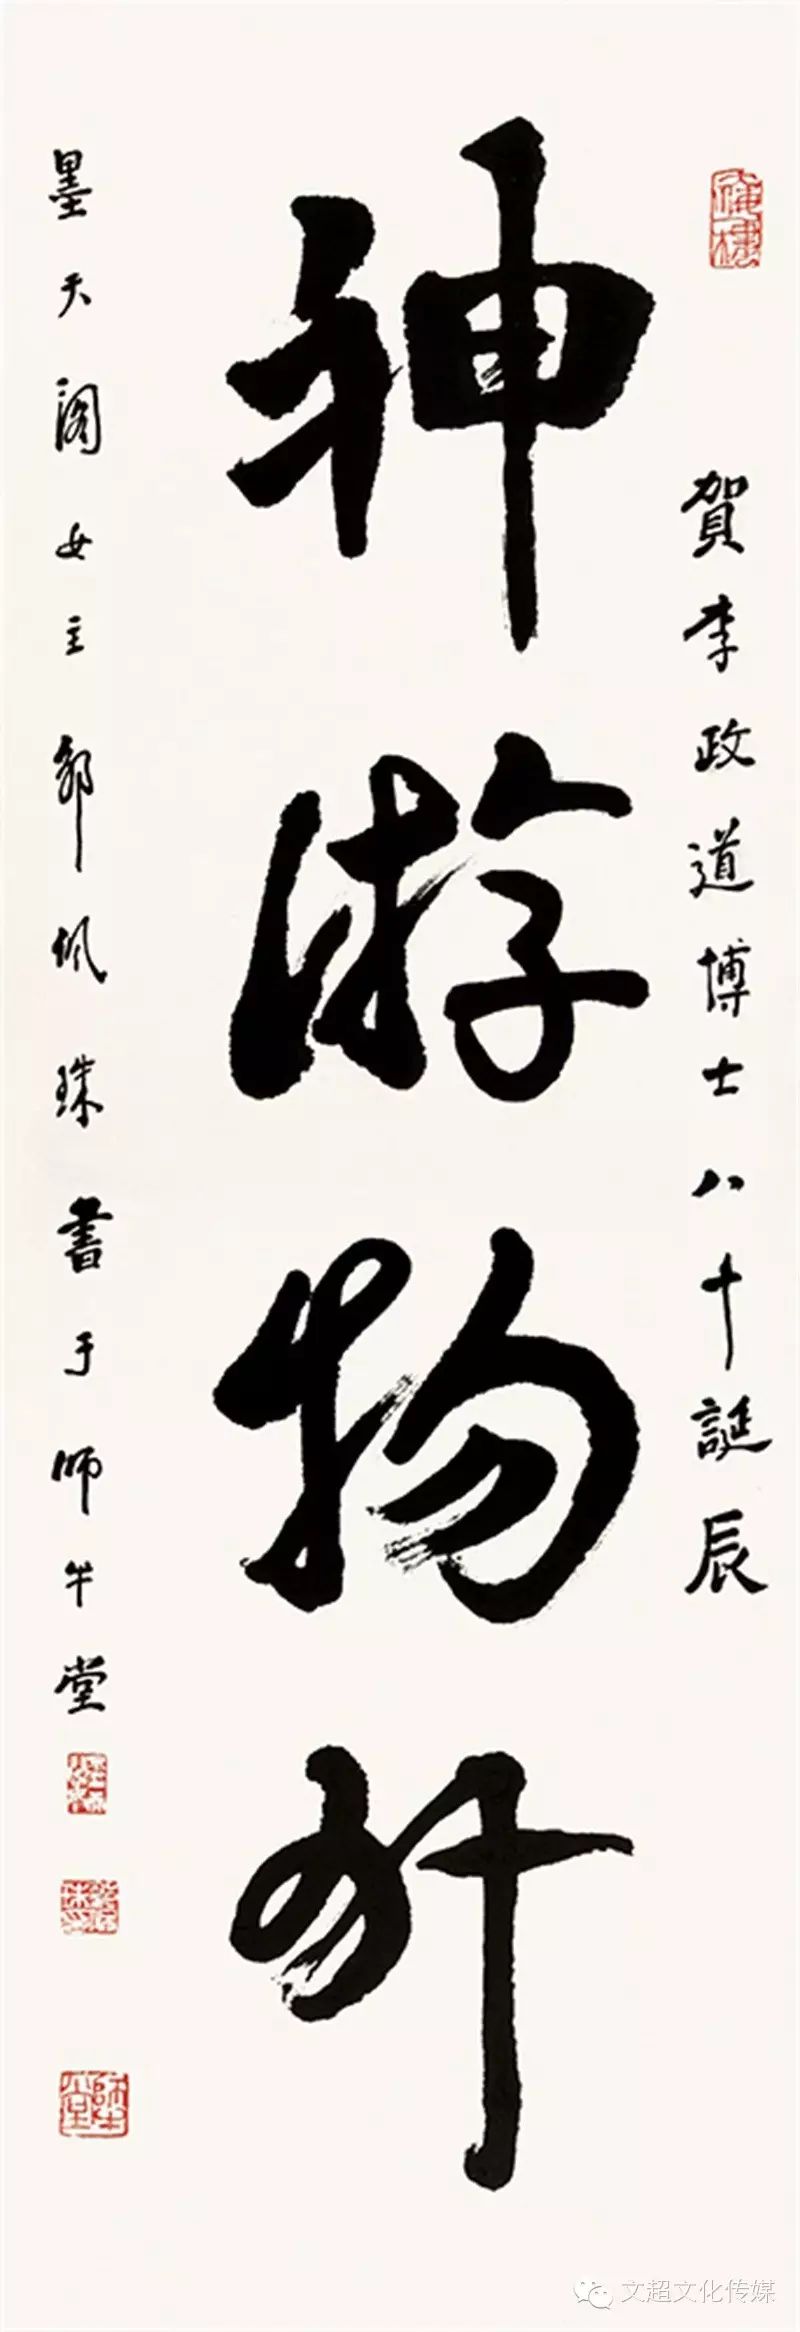 賀李政道博士八十誕辰
神游物外
墨天閣女主鄒佩珠書于師牛堂
師牛堂
文超文化传媒